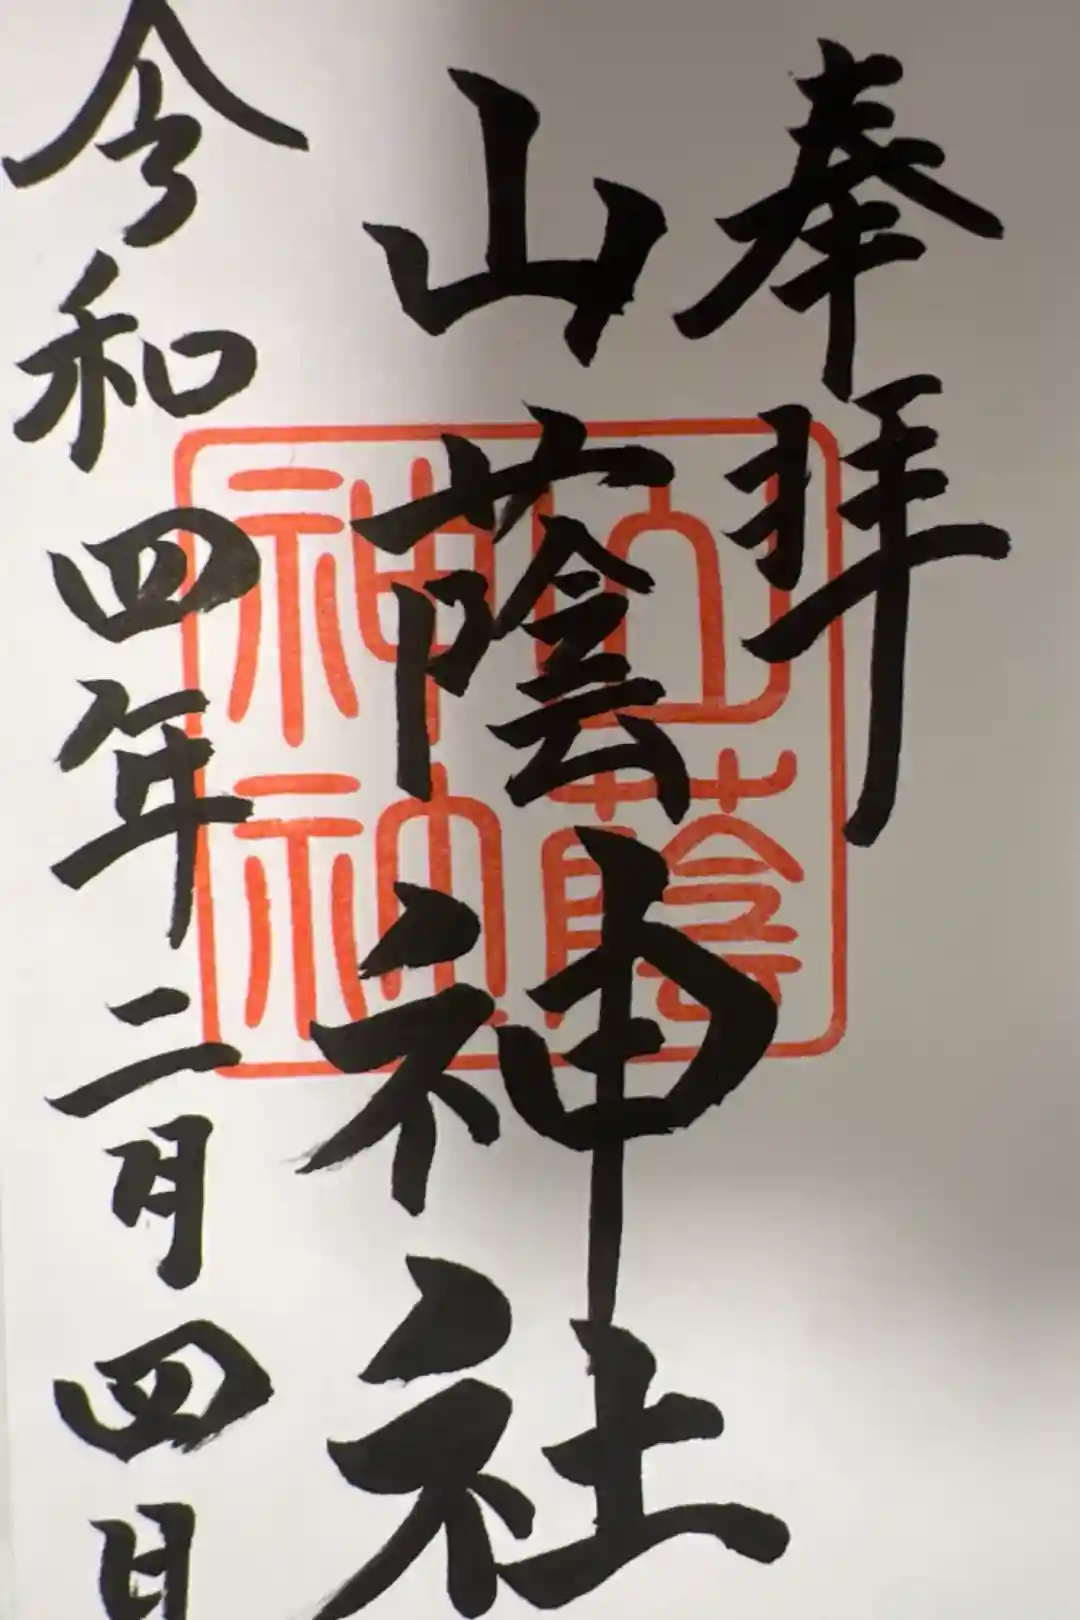 奉拝
山蔭神社
令和四年二月四日
山蔭
神社